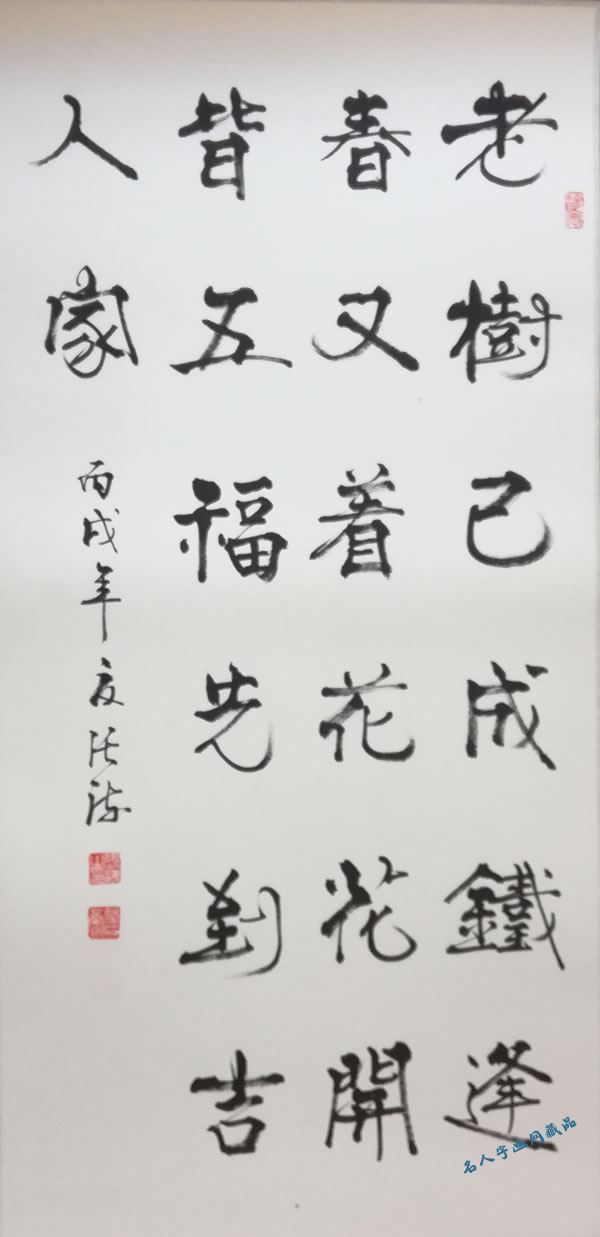 老樹已成鐵逢
春又着花花開
皆五福先到吉
人家
丙戌年
名人字画网藏品